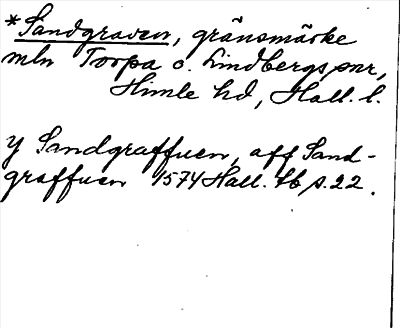 *Sandgraven, gränsmärke
mln Torpa o. Lindbergs snr,
Himle hd, Hall. l.
y Sandgraffuen, aff Sand-
graffuen 1574 Hall. tb s. 22.